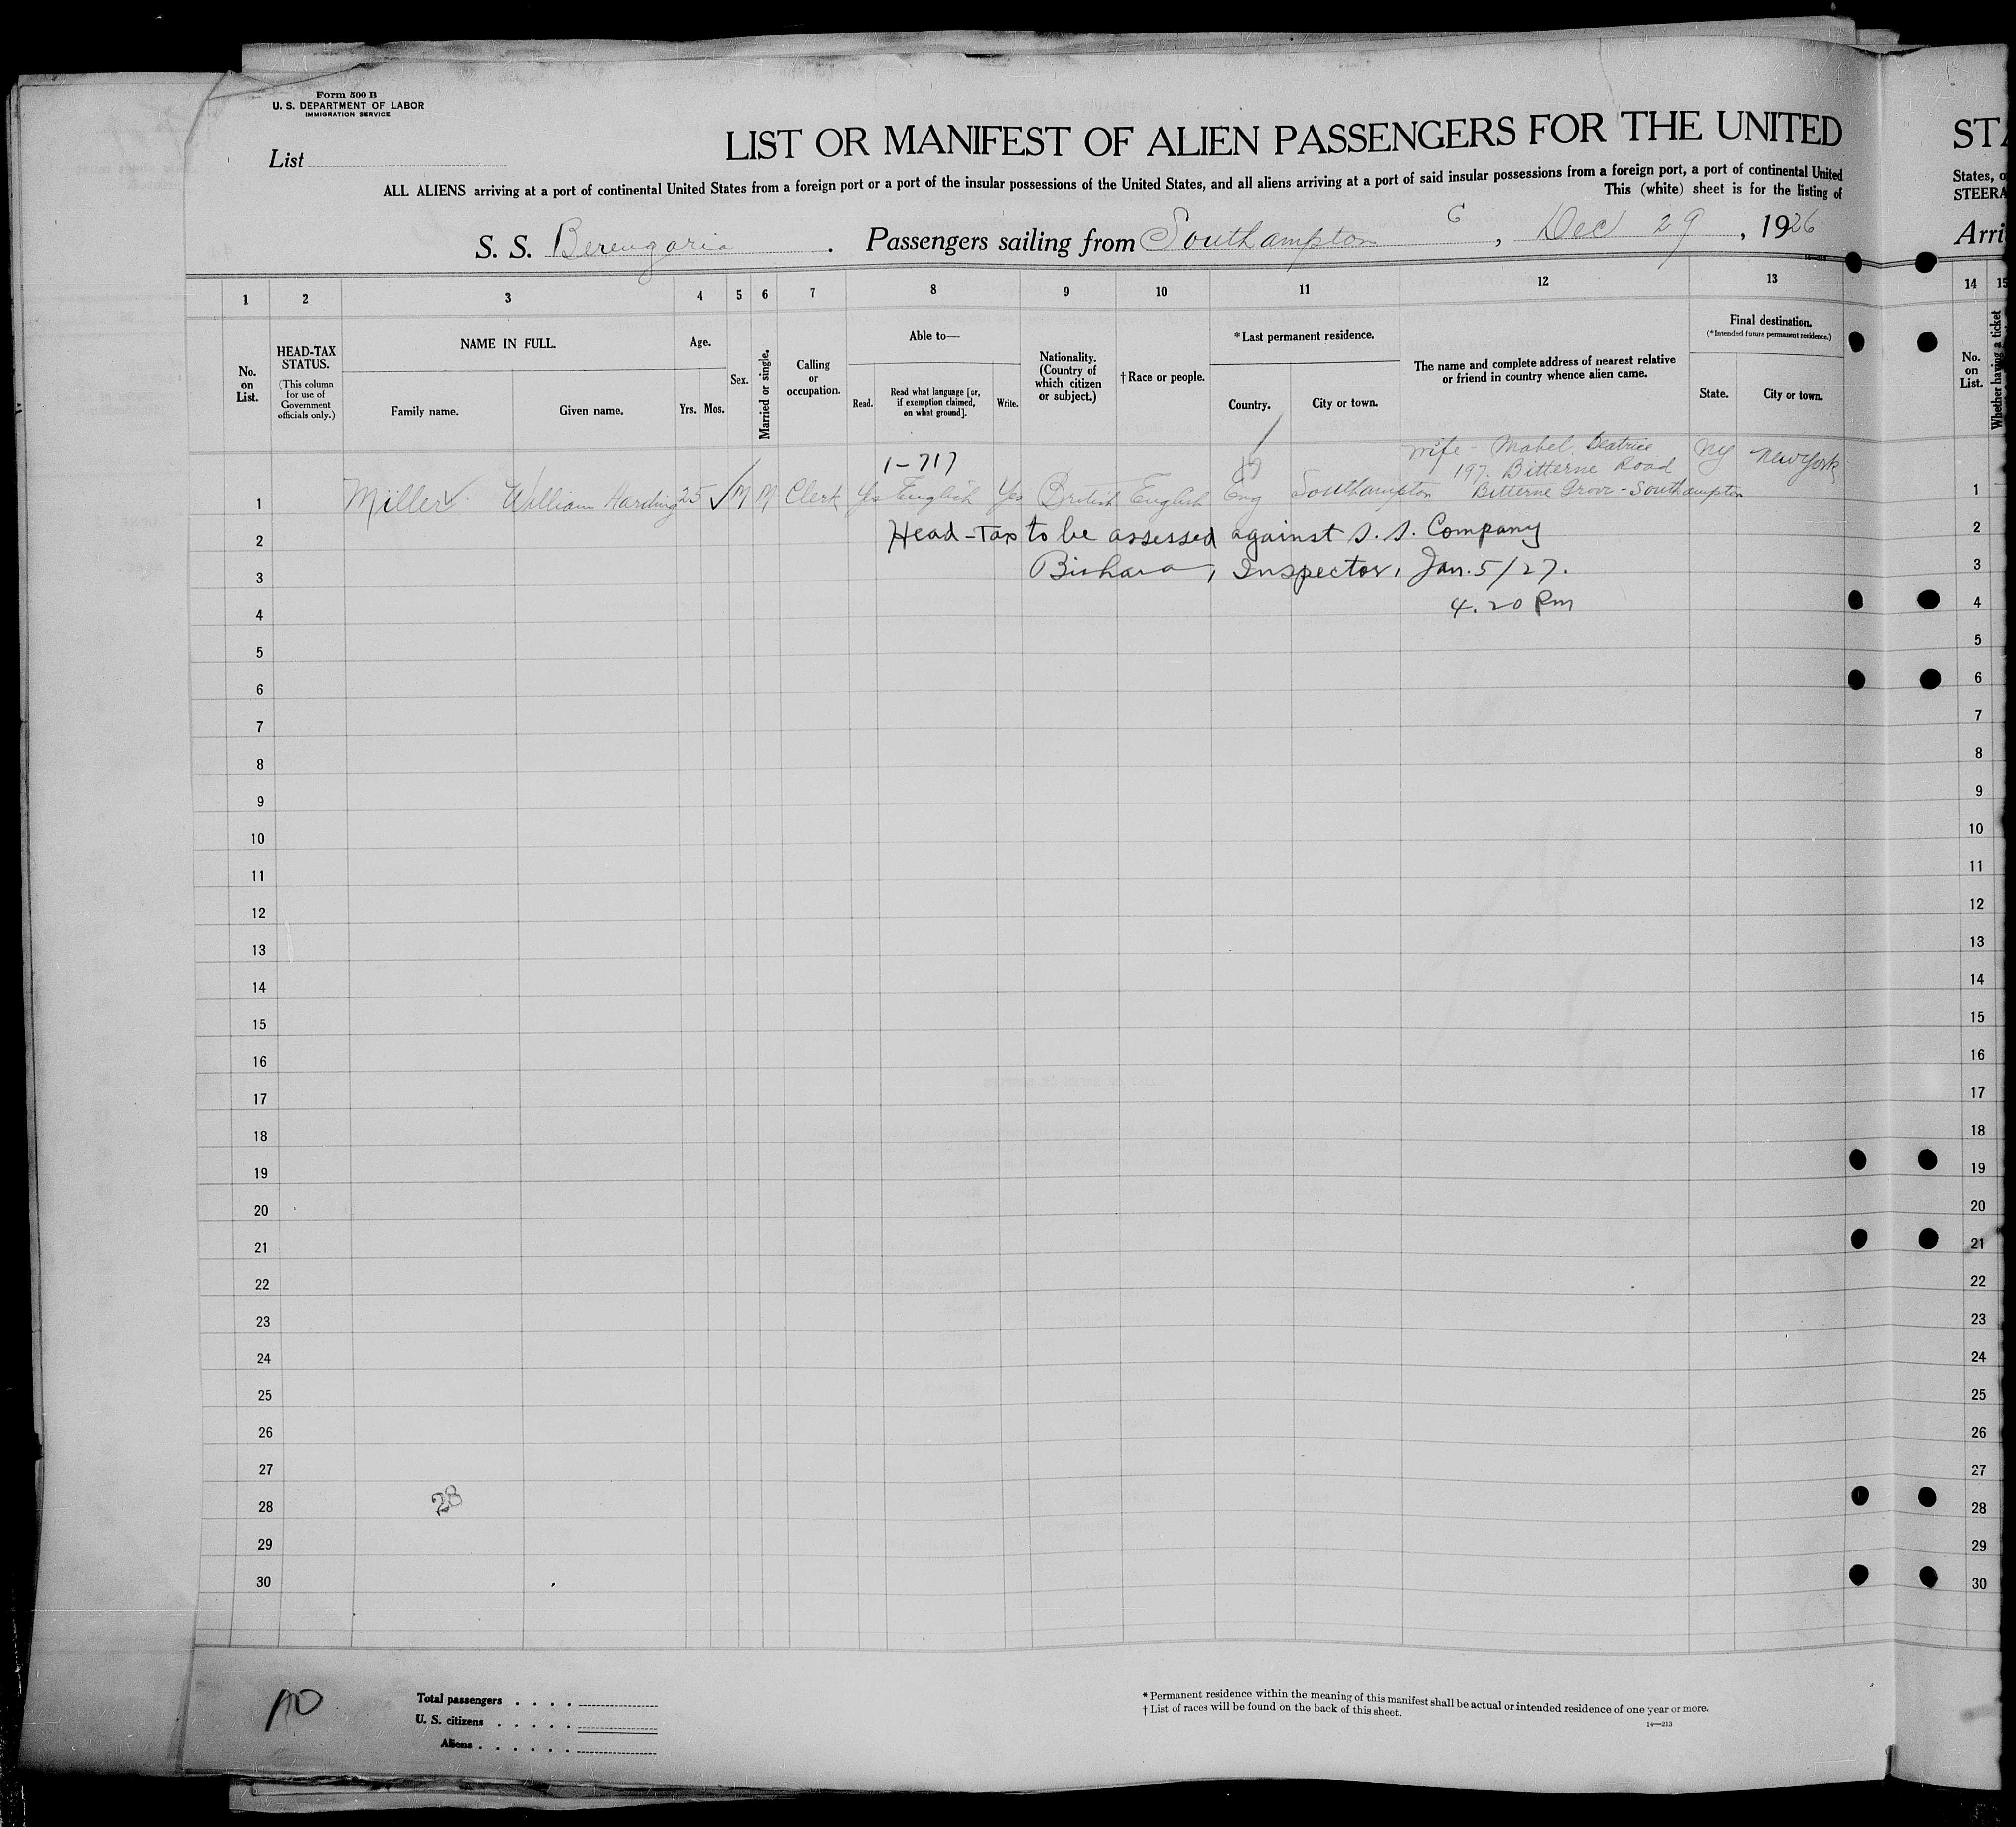 Form 500 B
U. S. DEPARTMENT OF LABOR
IMMIGRATION SERVICE
List
LIST OR MANIFEST OF ALIEN PASSENGERS FOR THE UNITED
ALL ALIENS arriving at a port of continental United States from a foreign port or a port of the insular possessions of the United States, and all aliens arriving at a port of said insular possessions from a foreign port, a port of continental United
This (white) sheet is for the listing of
S. S. Berengaria. Passengers sailing from Southampton, Dec 29, 1926
STA
States, o
STEERA
Arri
1 2 3 4 5 6 7 8 9 10 11 12 13 14 15
No. on List.
HEAD-TAX STATUS.
(This column for use of Government officials only.)
NAME IN FULL.
Family name. Given name.
Age.
Yrs. Mos.
Sex.
Married or single.
Calling or occupation.
Able to—
Read. Read what language [or, if exemption claimed, on what ground]. Write.
Nationality. (Country of which citizen or subject.)
† Race or people.
* Last permanent residence.
Country. City or town.
The name and complete address of nearest relative or friend in country whence alien came.
Final destination.
(* Intended future permanent residence.)
State. City or town.
No. on List.
Whether having a ticket
1-717
wife - Mabel Beatrice
197. Bitterne Road
1 Miller William Harding 25 M M Clerk Yes English Yes British English Eng Southampton Bitterne Grove - Southampton NY New York 1
2 Head-Tax to be assessed against S. S. Company 2
3 Bishara, Inspector, Jan. 5/27. 3
4 4.20 Pm 4
5 5
6 6
7 7
8 8
9 9
10 10
11 11
12 12
13 13
14 14
15 15
16 16
17 17
18 18
19 19
20 20
21 21
22 22
23 23
24 24
25 25
26 26
27 27
28 28 28
29 29
30 30
Total passengers . . . .
U. S. citizens . . . . .
Aliens . . . . . .
* Permanent residence within the meaning of this manifest shall be actual or intended residence of one year or more.
† List of races will be found on the back of this sheet.
14—213